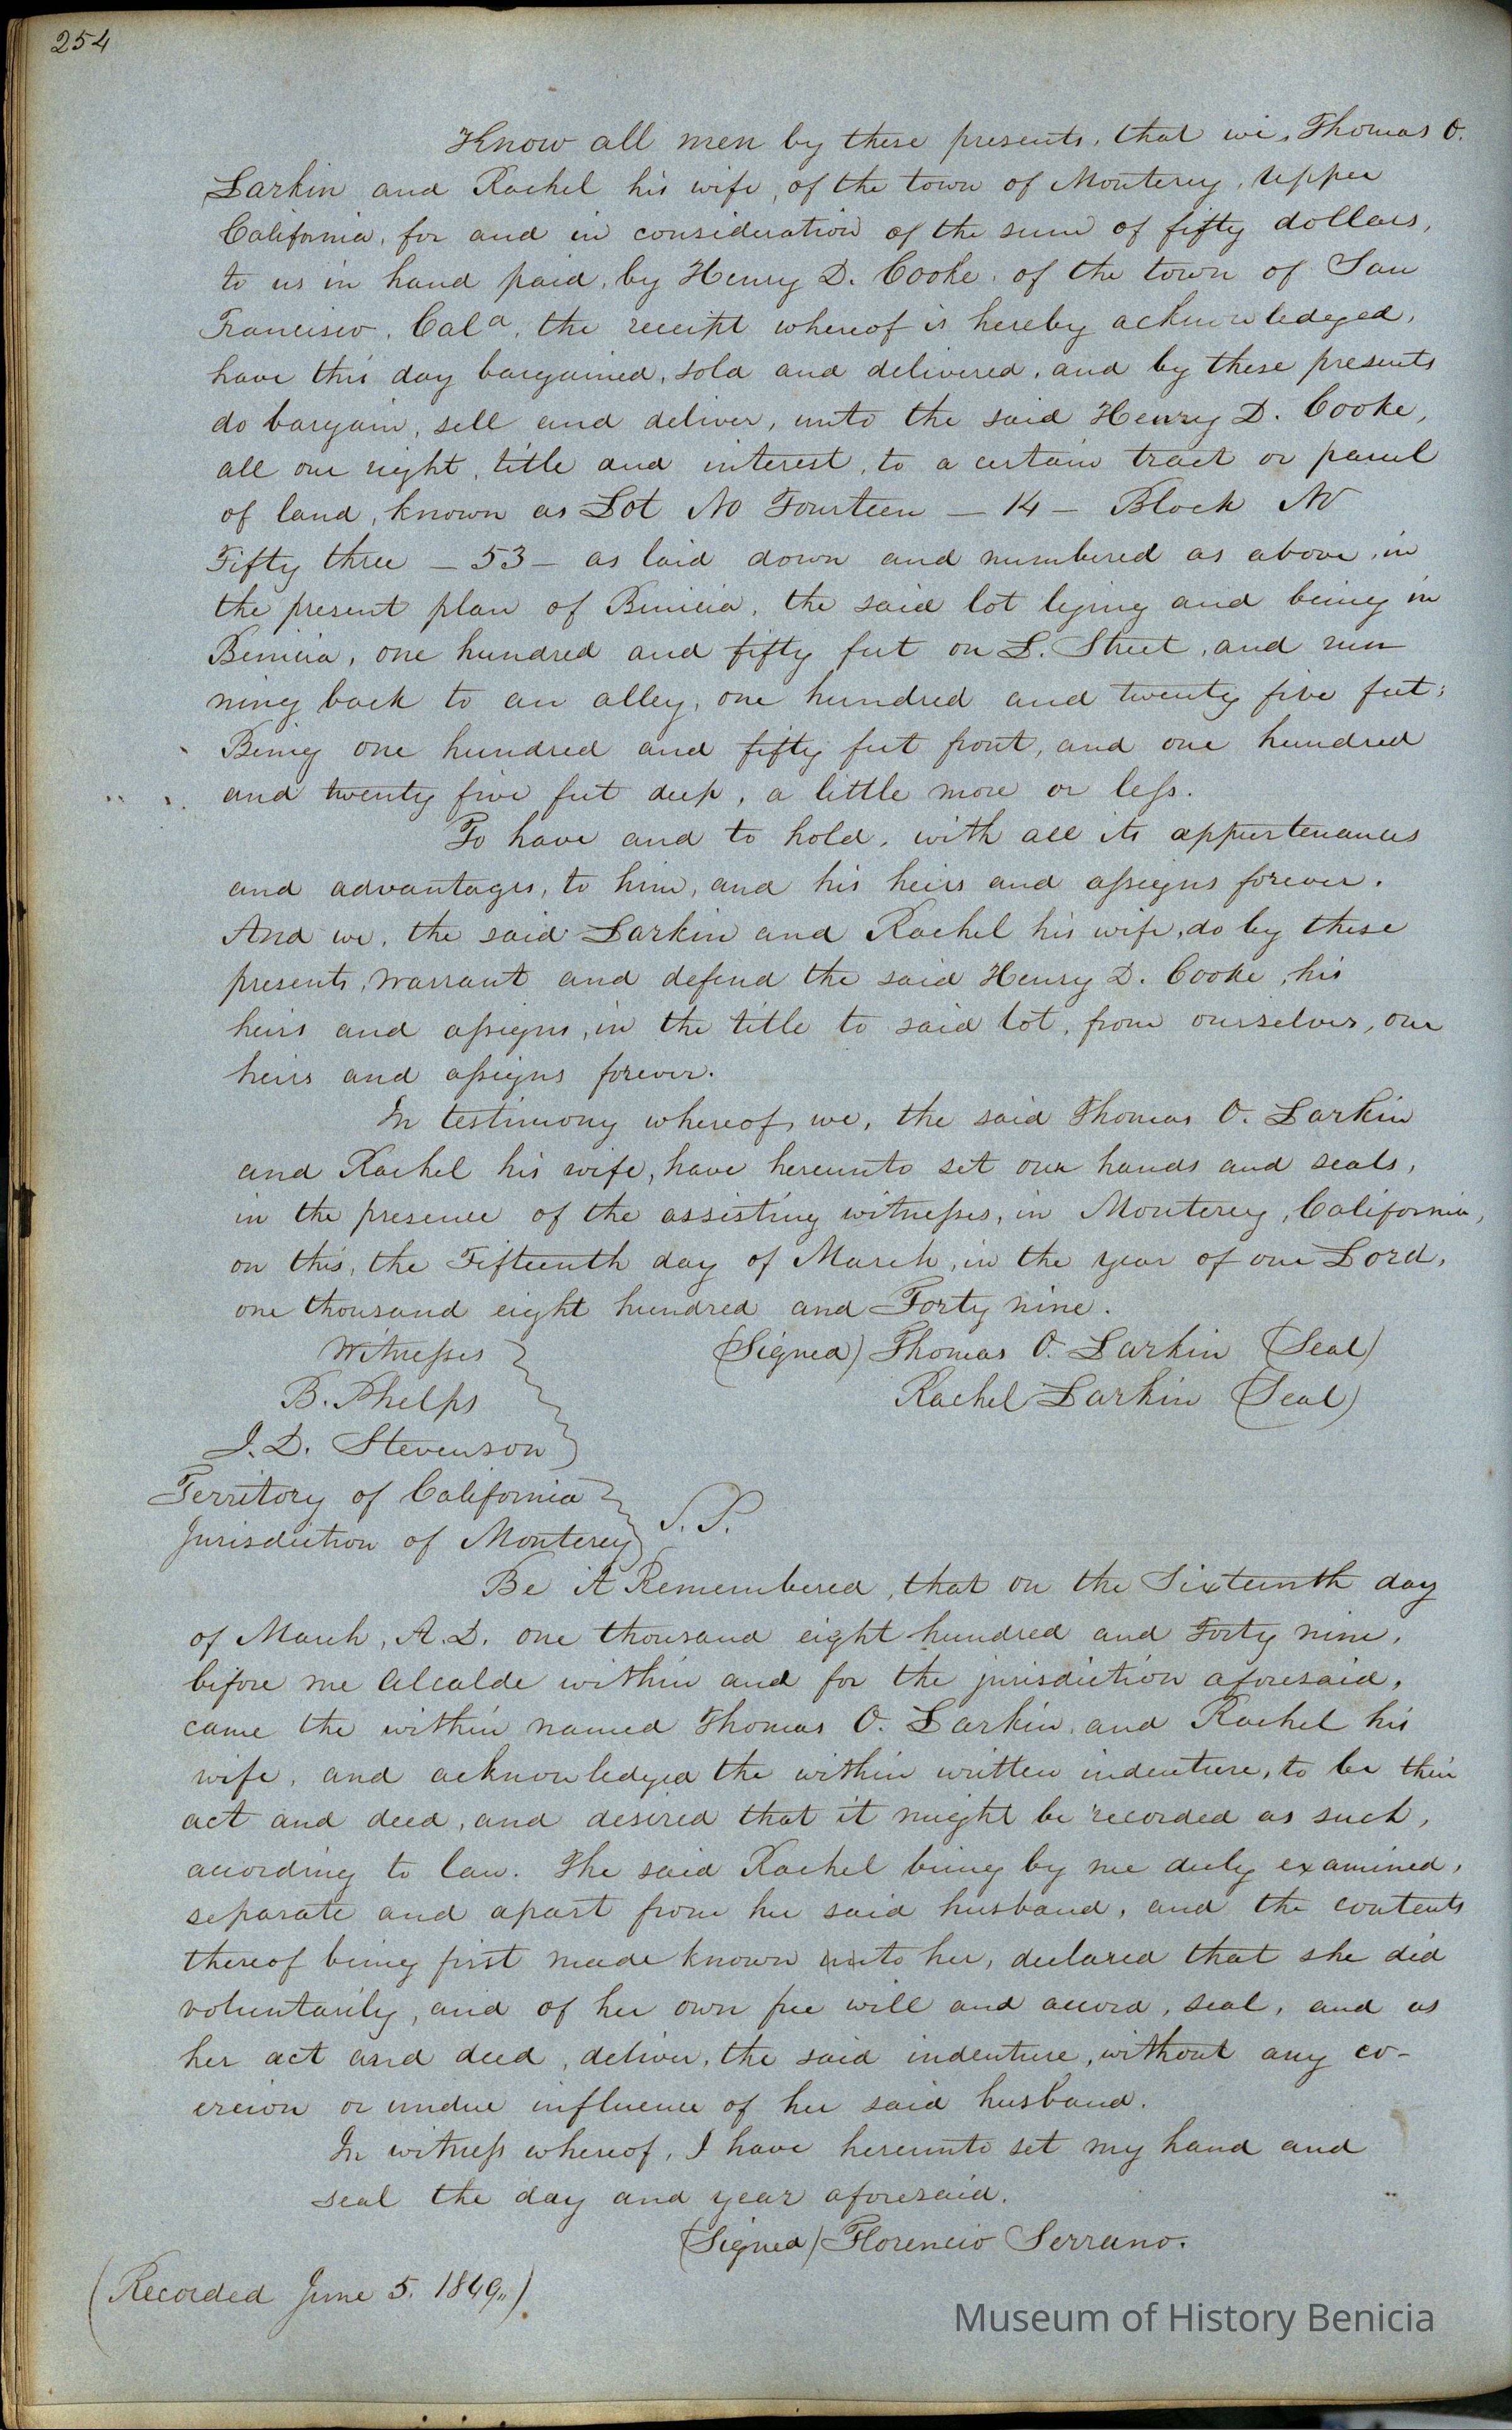 254
Know all men by these presents, that we, Thomas O.
Larkin and Rachel his wife, of the town of Monterey, Upper
California, for and in consideration of the sum of fifty dollars,
to us in hand paid, by Henry D. Cooke, of the town of San
Francisco, Cala, the receipt whereof is hereby acknowledged,
have this day bargained, sold and delivered, and by these presents
do bargain, sell and deliver, unto the said Henry D. Cooke,
all our right, title and interest, to a certain tract or parcel
of land, known as Lot No Fourteen – 14 – Block No
Fifty three – 53 – as laid down and numbered as above, in
the present plan of Benicia, the said lot lying and being in
Benicia, one hundred and fifty feet on L. Street, and run
ning back to an alley, one hundred and twenty five feet;
Being one hundred and fifty feet front, and one hundred
and twenty five feet deep, a little more or less.
To have and to hold, with all its appurtenances
and advantages, to him, and his heirs and assigns forever.
And we, the said Larkin and Rachel his wife, do by these
presents, warrant and defend the said Henry D. Cooke, his
heirs and assigns, in the title to said lot, from ourselves, our
heirs and assigns forever.
In testimony whereof, we, the said Thomas O. Larkin
and Rachel his wife, have hereunto set our hands and seals,
in the presence of the assisting witnesses, in Monterey, California,
on this, the Fifteenth day of March, in the year of our Lord,
one thousand eight hundred and Forty nine.
Witnesses (Signed) Thomas O. Larkin (Seal)
B. Phelps Rachel Larkin (Seal)
J. D. Stevenson
Territory of California
Jurisdiction of Monterey S.S.
Be it Remembered, that on the Sixteenth day
of March, A.D. one thousand eight hundred and Forty nine,
before me Alcalde within and for the jurisdiction aforesaid,
came the within named Thomas O. Larkin, and Rachel his
wife, and acknowledged the within written indenture, to be their
act and deed, and desired that it might be recorded as such,
according to law. The said Rachel being by me duly examined,
separate and apart from her said husband, and the contents
thereof being first made known unto her, declared that she did
voluntarily, and of her own free will and accord, seal, and as
her act and deed, deliver, the said indenture, without any co-
ercion or undue influence of her said husband.
In witness whereof, I have hereunto set my hand and
seal the day and year aforesaid.
(Signed) Florencio Serrano.
(Recorded June 5. 1849,,)
Museum of History Benicia